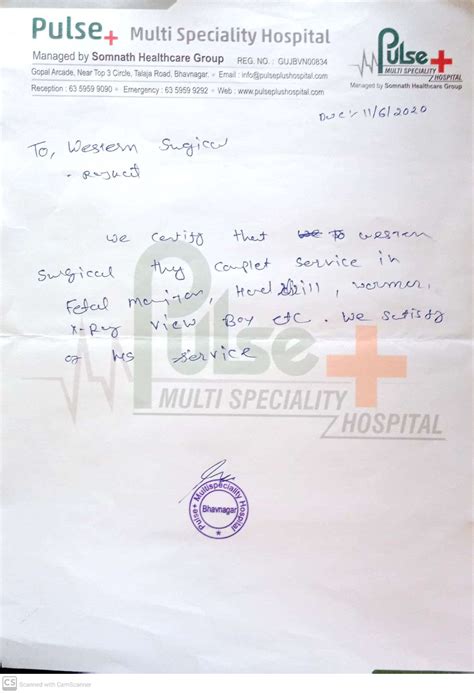 Pulse+ Multi Speciality Hospital
Managed by Somnath Healthcare Group REG. NO. : GUJBVN00834
Gopal Arcade, Near Top 3 Circle, Talaja Road, Bhavnagar. • Email : info@pulseplushospital.com
Reception : 63 5959 9090 • Emergency : 63 5959 9292 • Web : www.pulseplushospital.com
Pulse+
MULTI SPECIALITY HOSPITAL
Managed by Somnath Healthcare Group
Date:- 11/6/2020
To, Western Sugical
- Rajkot
We certify that We To western
Surgical they complet service in
Fetal Monitor, Hand drill, warmer,
X-Ray View Box etc. We satisfy
of his service
Pulse+
MULTI SPECIALITY HOSPITAL
Pulse+ Multispeciality Hospital
Bhavnagar
CS Scanned with CamScanner